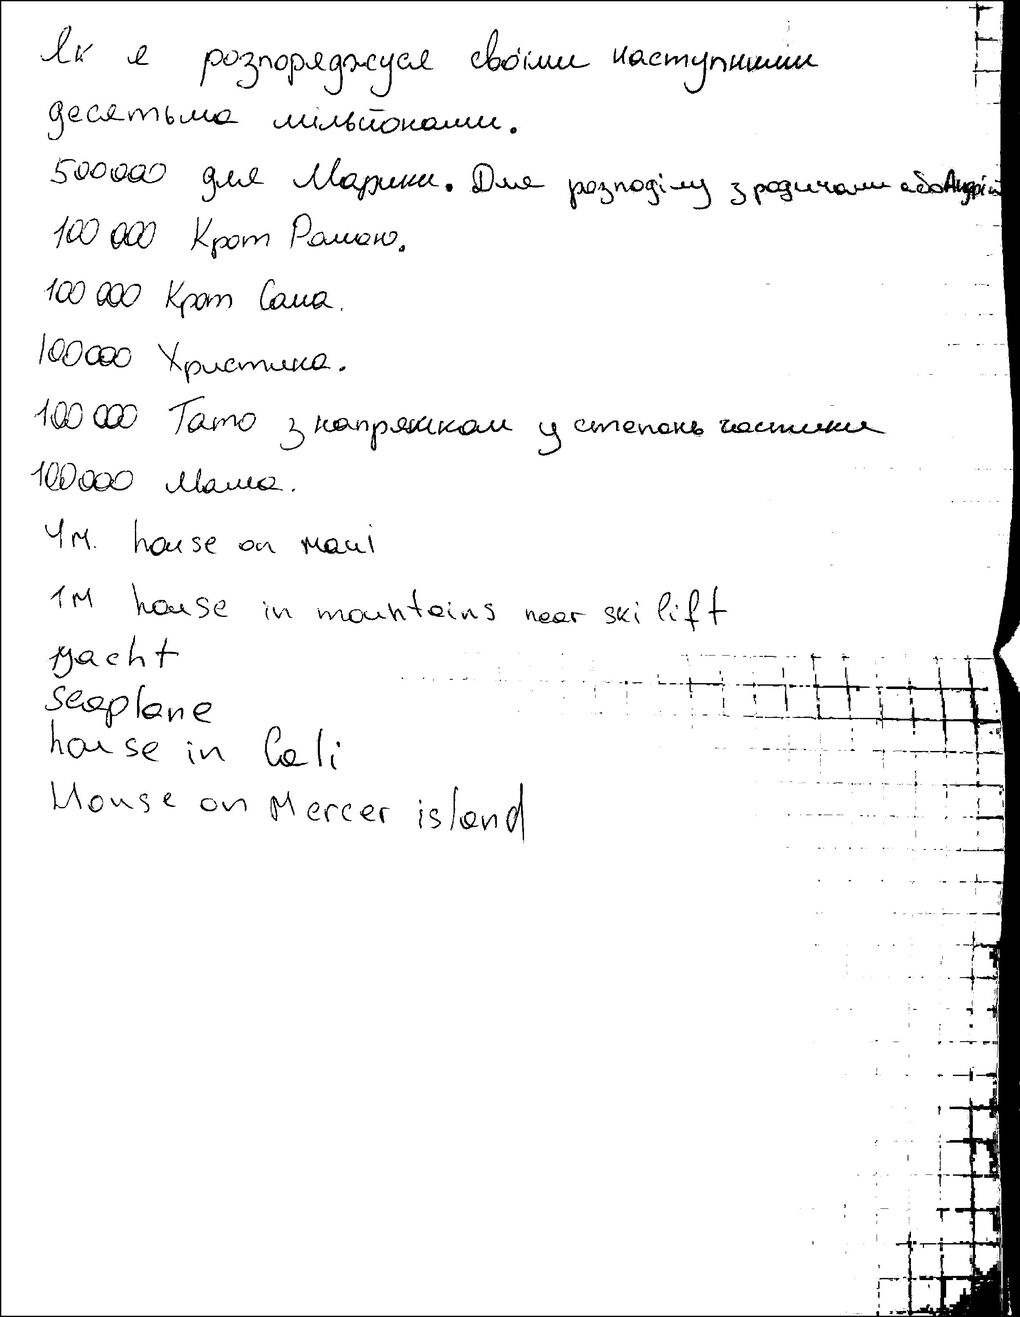 Як я розпоряджуся своїми наступними
десятьма мільйонами.
500000 для Марини. Для розподілу з родичами або Андрій
100 000 Крот Рамаю.
100 000 Крот Саша.
100000 Христина.
100 000 Тато з напрямком у степень частини
100000 Мама.
4м. house on maui
1м house in mountains near ski lift
yacht
seaplane
house in Cali
House on Mercer island